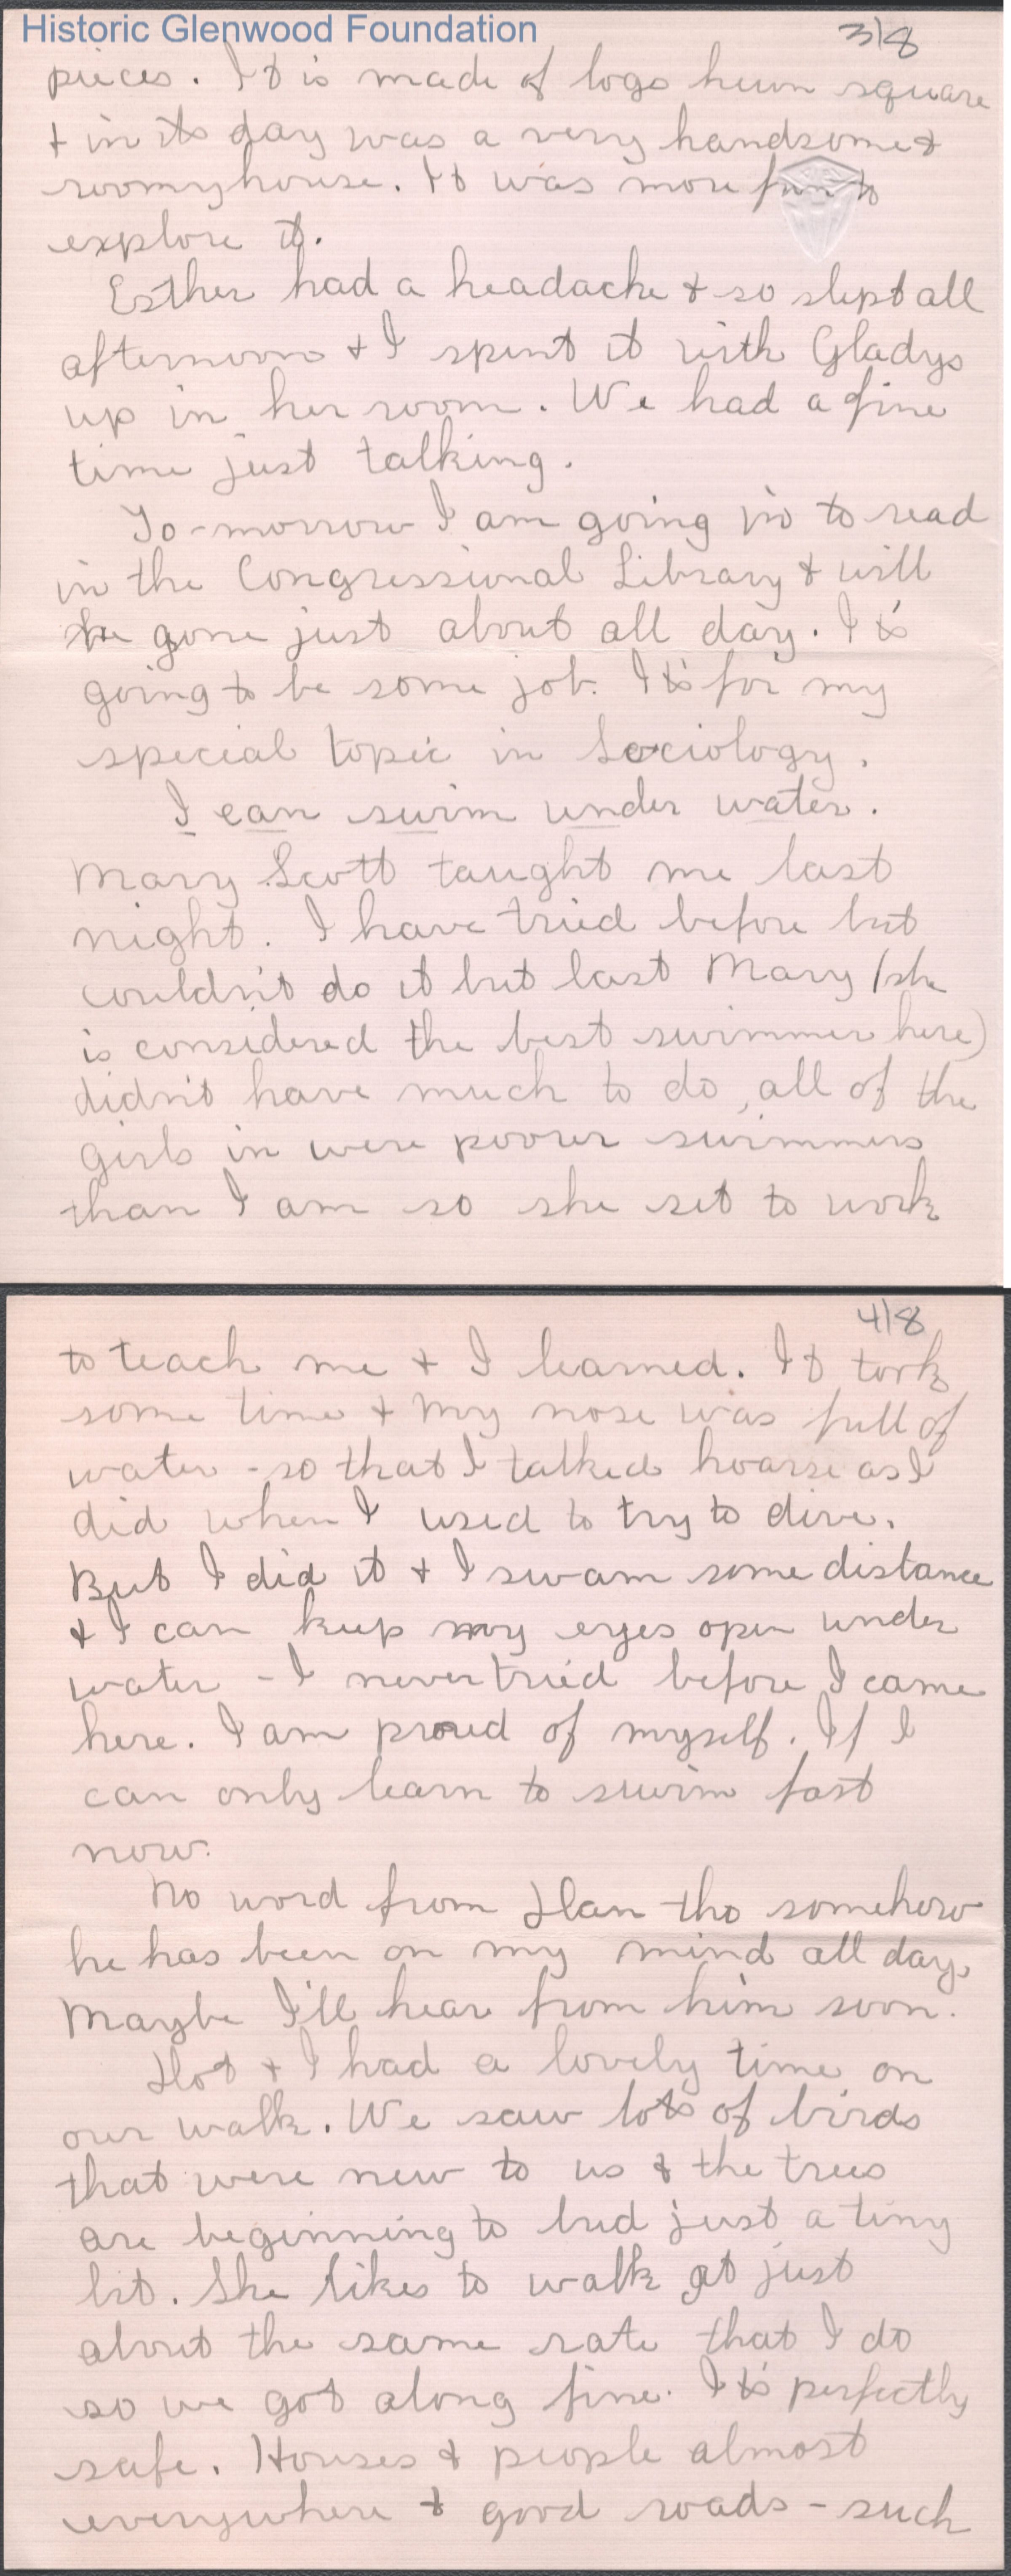 Historic Glenwood Foundation
3/8
pieces. It is made of logs hewn square
+ in its day was a very handsome +
roomy house. It was more fun to
explore it.
Esther had a headache + so slept all
afternoon + I spent it with Gladys
up in her room. We had a fine
time just talking.
To-morrow I am going in to read
in the Congressional Library + will
be gone just about all day. It's
going to be some job. It's for my
special topic in Sociology.
I can swim under water.
Mary Scott taught me last
night. I have tried before but
couldn't do it but last Mary (she
is considered the best swimmer here)
didn't have much to do, all of the
girls in were poorer swimmers
than I am so she set to work
4/8
to teach me + I learned. It took
some time + my nose was full of
water - so that I talked hoarse as I
did when I used to try to dive.
But I did it + I swam some distance
+ I can keep my eyes open under
water - I never tried before I came
here. I am proud of myself. If I
can only learn to swim fast
now.
No word from Han tho somehow
he has been on my mind all day.
Maybe I'll hear from him soon.
Dot + I had a lovely time on
our walk. We saw lots of birds
that were new to us + the trees
are beginning to bud just a tiny
bit. She likes to walk at just
about the same rate that I do
so we got along fine. It's perfectly
safe. Houses + people almost
everywhere + good roads - such